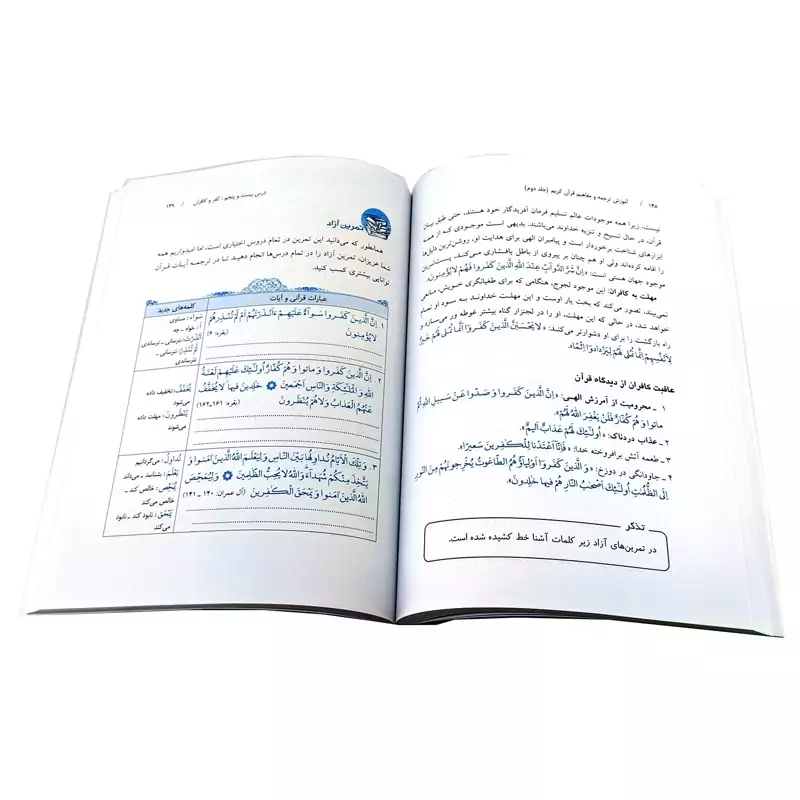 ۱۳۸ / آموزش ترجمه و مفاهیم قرآن کریم (جلد دوم)
نیست، زیرا همه موجودات عالم تسلیم فرمان آفریدگار خود هستند، حتی طبق بیان
قرآن، در حال تسبیح و تنزیه خداوند می‌باشند. بدیهی است موجودی که از همه
ابزارهای شناخت برخوردار است و پیامبران الهی برای هدایت او، روشن‌ترین دلایل
را اقامه کرده‌اند ولی او هم چنان بر پیروی از باطل پافشاری می‌کند، پست‌ترین
موجود جهان هستی است: «إِنَّ شَرَّ الدَّوَآبِّ عِندَ اللهِ الَّذینَ کَفَروا فَهُم لایُؤمِنونَ».
مهلت به کافران: این موجود لجوج، هنگامی که برای طغیانگری خویش، مانعی
نمی‌بیند، تصور می‌کند که بخت یار اوست و این مهلت خداوند به سود او تمام
خواهد شد، در حالی که این مهلت، او را در لجنزار گناه بیشتر غوطه ور می‌سازد و
راه بازگشت را برای او دشوارتر می‌کند: «لایَحسَبَنَّ الَّذینَ کَفَروا أَنَّما نُملی لَهُم خَیرٌ
لِأَنفُسِهِم إِنَّما نُملی لَهُم لِیَزدادوا إِثمًا».
عاقبت کافران از دیدگاه قرآن
۱ ـ محرومیت از آمرزش الهی: «إِنَّ الَّذینَ کَفَروا وَ صَدّوا عَن سَبیلِ اللهِ ثُمَّ
ماتوا وَ هُم کُفّارٌ فَلَن یَغفِرَ اللهُ لَهُم».
۲ ـ عذاب دردناک: «أُولٰئِکَ لَهُم عَذابٌ أَلیمٌ».
۳ ـ طعمه آتش برافروخته خدا: «فَإِنّا أَعتَدنا لِلکٰفِرینَ سَعیرًا».
۴ ـ جاودانگی در دوزخ: «وَ الَّذینَ کَفَروا أَولِیاؤُهُمُ الطّاغوتُ یُخرِجونَهُم مِنَ النّورِ
إِلَی الظُّلُمٰتِ أُولٰئِکَ أَصحٰبُ النّارِ هُم فیها خٰلِدونَ».
تذکر
در تمرین‌های آزاد زیر کلمات آشنا خط کشیده شده است.
درس بیست و پنجم: کفر و کافران / ۱۳۹
تمرین آزاد
همانطور که می‌دانید این تمرین در تمام دروس اختیاری است، اما امیدواریم همه
شما عزیزان، تمرین آزاد را در تمام درس‌ها انجام دهید تا در ترجمه آیات قرآن
توانایی بیشتری کسب کنید.
عبارات قرآنی و آیات
کلمه‌های جدید
۱. إِنَّ الَّذینَ کَفَروا سَوآءٌ عَلَیهِم ءَأَنذَرتَهُم أَم لَم تُنذِرهُم
لایُؤمِنونَ (بقره: ۶)
سَواء: مساوی
أَ: خواه ـ چه
أَنذَرتَ: بترسانی ـ ترساندی
لَم تُنذِر: نترسانی ـ
نترساندی
۲. إِنَّ الَّذینَ کَفَروا وَ ماتوا وَ هُم کُفّارٌ أُولٰئِکَ عَلَیهِم لَعنَةُ
اللهِ وَ المَلٰئِکَةِ وَ النّاسِ أَجمَعینَ خٰلِدینَ فیها لا یُخَفَّفُ
عَنهُمُ العَذابُ وَ لا هُم یُنظَرونَ (بقره: ۱۶۱-۱۶۲)
یُخَفَّفُ: تخفیف داده
می‌شود
یُنظَرونَ: مهلت داده
می‌شوند
۳. وَ تِلکَ الأَیّامُ نُداوِلُها بَینَ النّاسِ وَ لِیَعلَمَ اللهُ الَّذینَ آمَنوا وَ
یَتَّخِذَ مِنکُم شُهَدآءَ وَ اللهُ لا یُحِبُّ الظّٰلِمینَ وَ لِیُمَحِّصَ
اللهُ الَّذینَ آمَنوا وَ یَمحَقَ الکٰفِرینَ (آل عمران: ۱۴۰ ـ ۱۴۱)
نُداوِلُ: می‌گردانیم
یَعلَمَ: بشناسد ـ می‌داند
یُمَحِّصَ: خالص کند ـ
خالص می‌کند
یَمحَقَ: نابود کند ـ نابود
می‌کند